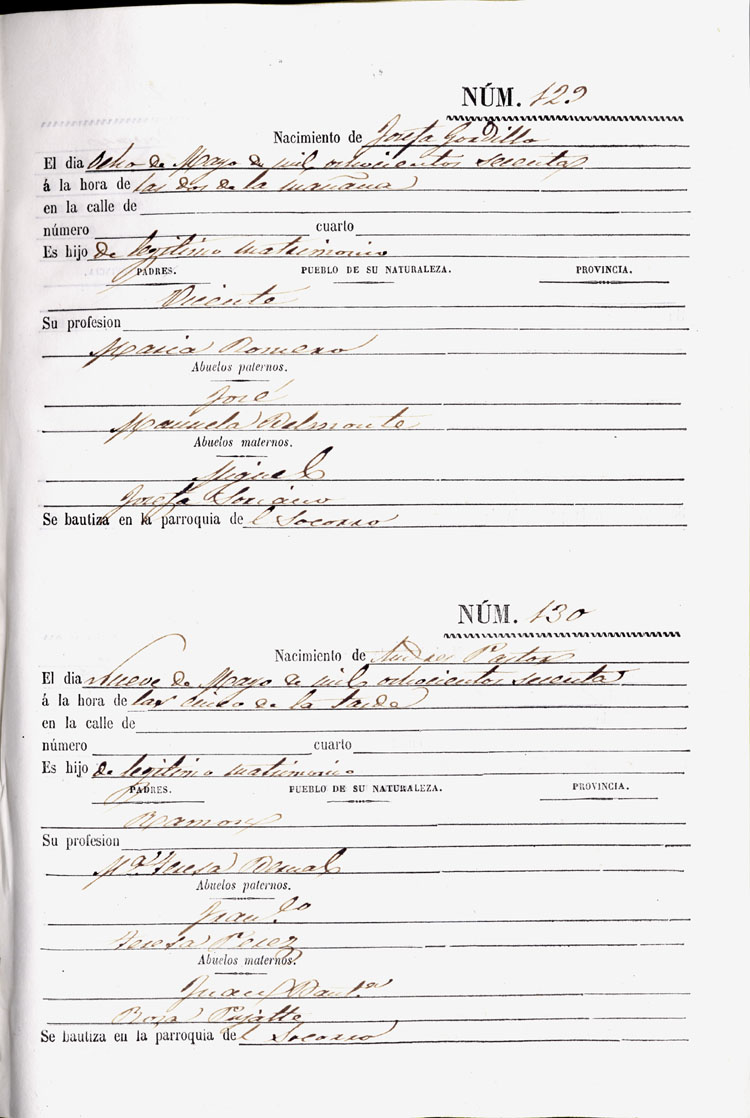 NÚM. 129
Nacimiento de Josefa Gordillo
El dia Ocho de Mayo de mil ochocientos sesenta
á la hora de las dos de la mañana
en la calle de
número cuarto
Es hijo de legitimo matrimonio
PADRES. PUEBLO DE SU NATURALEZA. PROVINCIA.
Vicente
Su profesion
Maria Romero
Abuelos paternos.
José
Manuela Belmonte
Abuelos maternos.
Miguel
Josefa Soriano
Se bautiza en la parroquia de l Socorro
NÚM. 130
Nacimiento de Andres Pastor
El dia Nueve de Mayo de mil ochocientos sesenta
á la hora de las cinco de la tarde
en la calle de
número cuarto
Es hijo de legitimo matrimonio
PADRES. PUEBLO DE SU NATURALEZA. PROVINCIA.
Ramon
Su profesion
Mª Teresa Bernal
Abuelos paternos.
Franco
Teresa Perez
Abuelos maternos.
Juan Bauta
Rosa Pujalte
Se bautiza en la parroquia de l Socorro